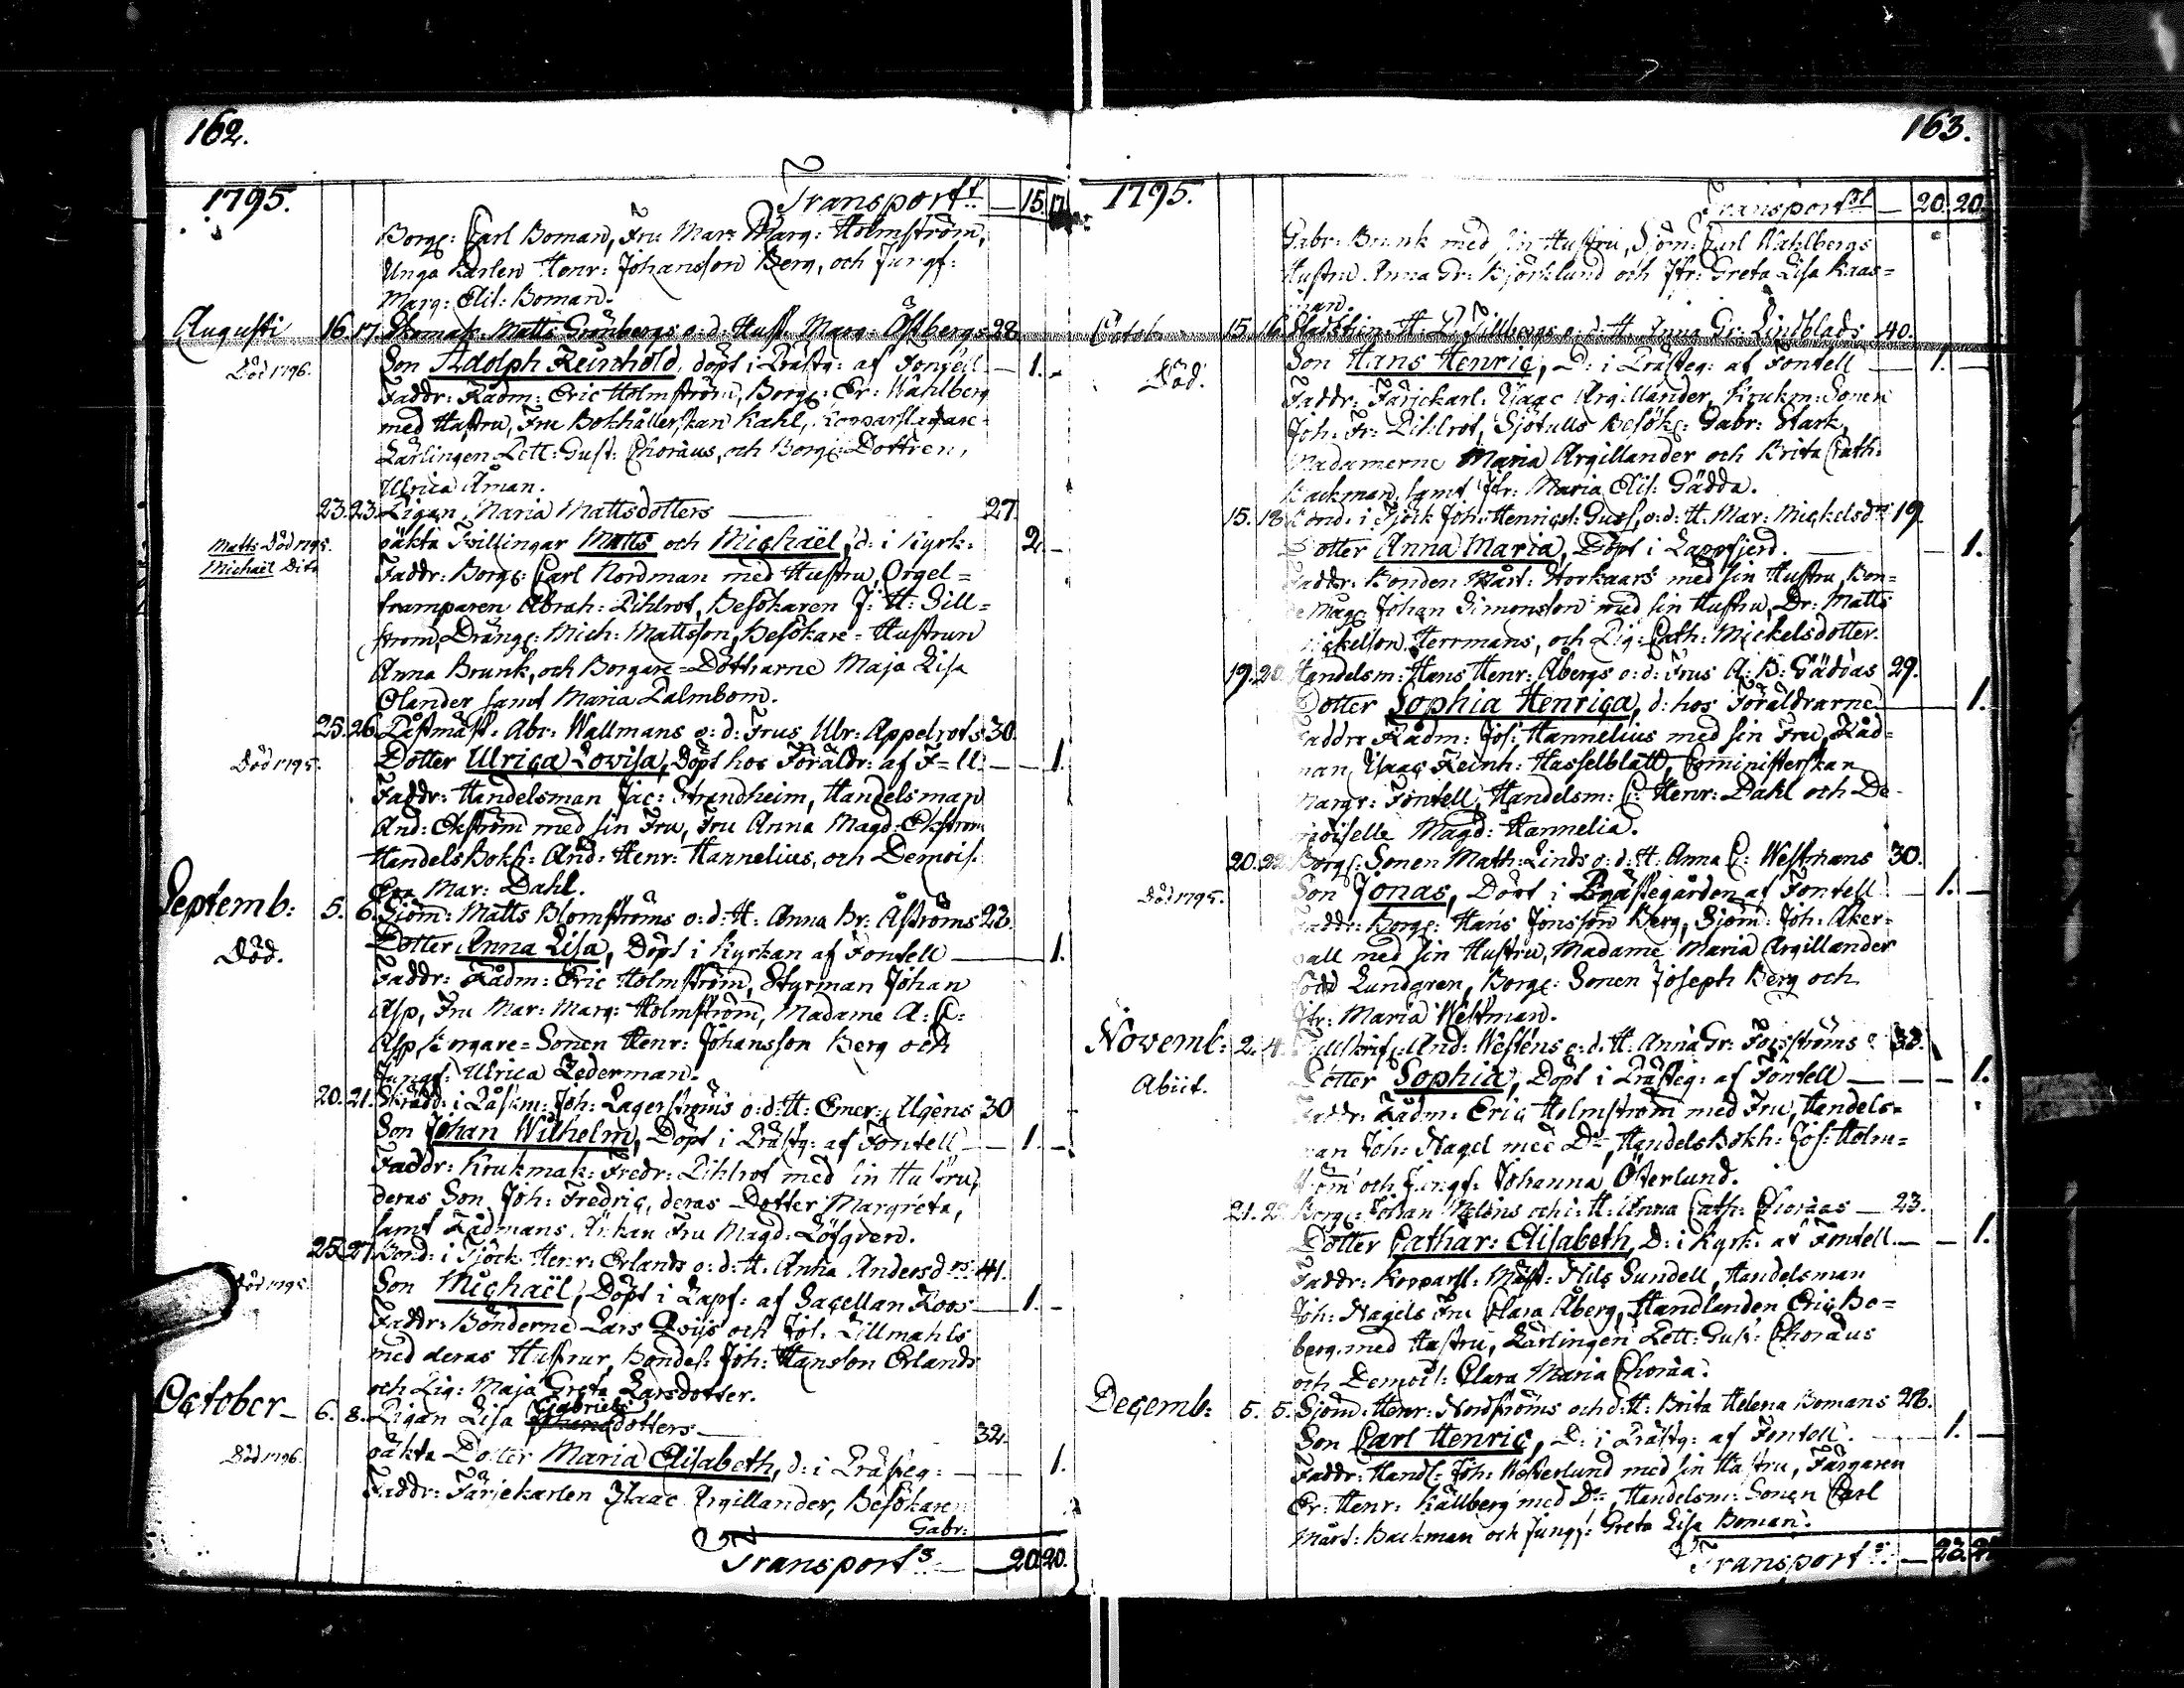 162.
1795. Transport — 15. 17.
Borg: Carl Boman, Fru Mar: Marg: Holmström,
Unga Karlen Henr: Johansson Berg, och Jungf:
Marg: Elis: Boman.
Augusti 16. 17. Skomak. Matts Grönbergs o: d: Hust. Marg: Åstbergs 28
Död 1796. Son Adolph Reinhold, döpt i Prästg: af Fontell — 1. -
Faddr: Rådm: Eric Holmström, Borg: Er: Wahlberg
med Hustru, Fru Bokhållerskan Kahl, Kopparslagare-
Lärlingen Pett: Gust: Choræus, och Borg: Dottren,
Ulrica Åman.
23. 23. Pigan Maria Mattsdotters — 27.
Matts Död 1795. oäkta Tvillingar Matts och Michaël, d: i Kyrk: 2. -
Michaël Dito Faddr: Borg: Carl Nordman med Hustru, Orgel=
tramparen Abrah: Pihlrot, Besökaren J: H: Sill=
ström, Dräng: Mich: Mattsson, Besökare-Hustrun
Anna Brunk, och Borgare-Döttrarne Maja Lisa
Olander samt Maria Palmbom.
25. 26. Postmäst. Abr: Wallmans o: d: Frus Ulr: Appelrots 30.
Död 1795. Dotter Ulrica Lovisa, Döpt hos Föräldr: af F=ll. — — 1.
Faddr: Handelsman Jac: Strandheim, Handelsman
And: Ekström med sin Fru, Fru Anna Magd: Ekström
Handels Bokh: And: Henr: Hannelius, och Demois:
Eva Mar: Dahl.
Septemb: 5. 6. Sjöm: Matts Blomströms o: d: H: Anna Br: Åströms 23.
Död. Dotter Anna Lisa, Döpt i Kyrkan af Fontell — 1.
Faddr: Rådm: Eric Holmström, Styrman Johan
Asp, Fru Mar: Marg: Holmström, Madame A: C:
Asp, Borgare-Sonen Henr: Johansson Berg och
Jungf: Ulrica Lederman.
20. 21. Skrädd: i Påskm: Joh: Lagerströms o: d: H: Emer: Ulgens 30
Son Johan Wilhelm, Döpt i Prästg: af Fontell — 1. -
Faddr: Krukmak: Fredr: Pihlrot med sin Hustru,
deras Son Joh: Fredric, deras Dotter Margreta,
samt Rådmans Änkan Fru Magd: Löfgren.
25. 27. Bond: i Tjöck Henr: Erlands o: d: H: Anna Andersd:rs 41.
Död 1795. Son Michaël, Döpt i Lapf: af Sacellan Roos — 1. -
Faddr: Bönderne Lars Qvijs och Joh: Lillmahls
med deras Hustrur, Bondes: Joh: Hansson Erlands
och Pig: Maja Greta Larsdotter.
October — 6. 8. Pigan Lisa Gabriels dotters — 32.
Död 1796. oäkta Dotter Maria Elisabeth, d: i Prästeg: — — 1.
Faddr: Färjekarlen Isaac Argillander, Besökaren
Gabr:
Transport:s — 20. 20.
163.
1795. Transport — 20. 20.
Gabr: Brunk med sin Hustru, Sjöm: Carl Wahlbergs
Hustru Anna Gr: Björklund och Jfr: Greta Lisa Kaas=
man.
Octob: 15. 16. H: Gillbergs o: d: H: Anna Gr: Lindblads 40.
Död. Son Hans Henric, D: i Prästeg: af Fontell — 1. —
Faddr: Färjekarl: Isaac Argillander, Krukm: Sonen
Joh: Fr: Pihlrot, Sjötulls Besök: Gabr: Stark,
Madamerne Maria Argillander och Brita Cath:
Backman, samt Jfr: Maria Elis: Gädda.
15. 18. Bond: i Tjöck Joh: Henrics: Guss, o: d: H: Mar: Mickelsd:rs 19.
Dotter Anna Maria, Döpt i Lappfjerd. — 1.
Faddr: Bonden Mårt: Storkaars med sin Hustru, Bon=
de Måg: Johan Simonsson med sin Hustru, Dr: Matts
Mickelsson Herrmans, och Pig: Cath: Mickelsdotter.
19. 20. Handelsm: Hans Henr: Åbergs o: d: Frus A: B: Gäddas 29.
Dotter Sophia Henrica, d: hos Föräldrarne — 1.
Faddr: Rådm: Jos: Hannelius med sin Fru, Råd=
man Isaac Reinh: Hasselblatt, Comministerskan
Margr: Fontell, Handelsm: C: Henr: Dahl och De-
moiselle Magd: Hannelia.
20. 22. Borg: Sonen Math: Linds o: d: H: Anna C: Westmans 30.
Död 1795. Son Jonas, Döpt i Prästegården af Fontell — 1. —
Faddr: Borg: Hans Jonsson Berg, Sjöm: Joh: Åker-
vall med sin Hustru, Madame Maria Argillander
född Lundgren, Borg: Sonen Joseph Berg och
Jfr: Maria Westman.
Novemb: 2. 4. And: Westens o: d: H: Anna Gr: Forsströms 38.
Abiit. Dotter Sophia, Döpt i Prästeg: af Fontell — — 1.
Faddr: Rådm: Eric Holmström med Fru, Handels=
man Joh: Nagel med D:o, Handels Bokh: Jos: Holm=
ström och Jungf: Johanna Österlund.
21. 22. Borg: Johan Melins och d: H: Anna Cath: Choræas — 23.
Dotter Cathar: Elisabeth, D: i Kyrk: af Fontell — — 1.
Faddr: Kopparsl: Mäst: Nils Sundell, Handelsman
Joh: Nagels Fru Clara Åberg, Handlanden Eric Bo=
berg med Hustru, Lärlingen Pett: Gust: Choræus
och Demois: Clara Maria Choræa.
Decemb: 5. 5. Sjöm: Henr: Nordströms och d: H: Brita Helena Bomans 28.
Son Carl Henric, D: i Prästg: af Fontell. — 1. —
Faddr: Handl: Joh: Westerlund med sin Hustru, Färgaren
Er: Henr: Källberg med D:o, Handelsm: Sonen Carl
Mårt: Backman och Jungf: Greta Lisa Boman.
Transport:s —